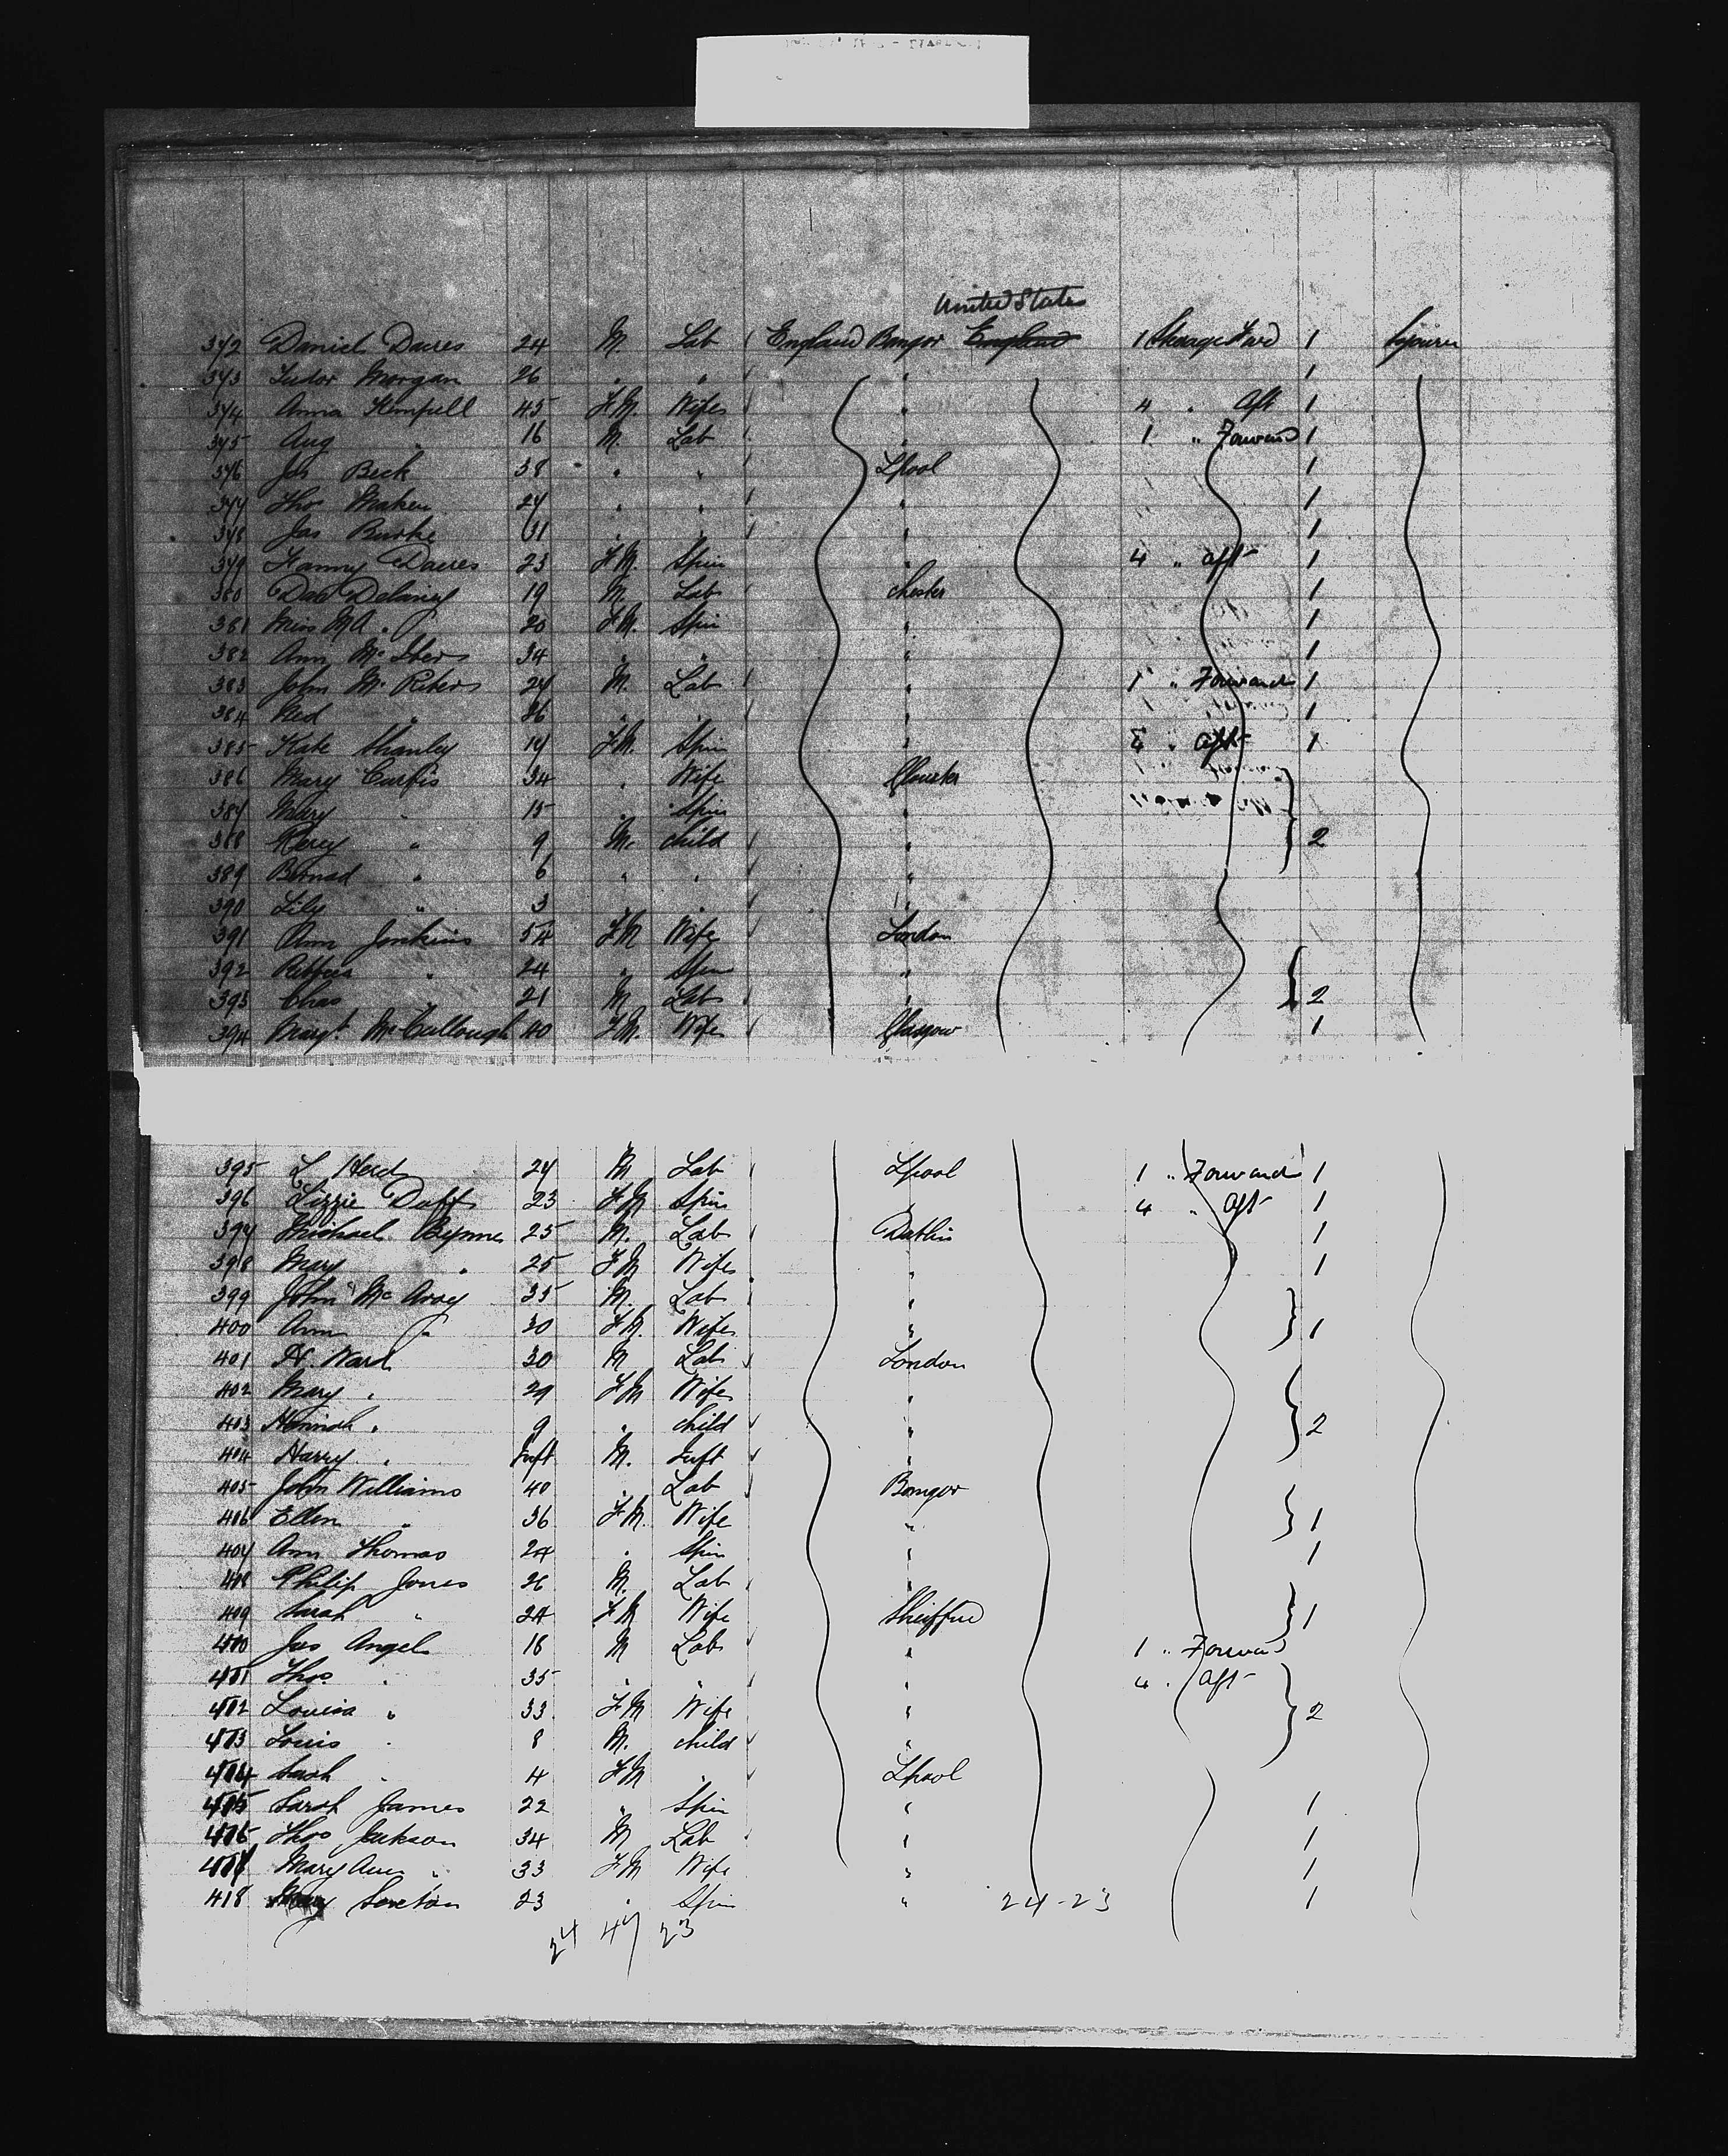 United States
372 Daniel Davies 24 M. Lab England Bangor England 1 Steerage Fwd 1
373 Tudor Morgan 26 " " " 1
374 Anna Kempell 45 F.M. Wife " 4 " Aft 1
375 Aug " 16 M. Lab " 1 " Forward 1
376 Jos Beck 38 " " Lpool 1
377 Thos Maken 27 " " " 1
378 Jas Burke 31 " " " 1
379 Fanny Davies 23 F.M. Spin " 4 " aft 1
380 Danl Delaney 19 M. Lab Chester 1
381 Miss MA " 20 F.M. Spin " 1
382 Ann 34 " " " 1
383 John 27 M. Lab " 1 " Forward 1
384 Ned " 26 " " " 1
385 Kate Shanley 17 F.M. Spin " 4 " aft 1
386 Mary Curtis 34 " Wife
387 Mary " 15 " Spin "
388 Percy " 9 M. child " 2
389 Bernard " 6 " " "
390 Lily " 3 " " "
391 Ann Jenkins 54 F.M Wife London
392 " 24 " Spin "
393 Chas " 21 M Lab " 2
394 Margt. McCullough 40 F.M. Wife Glasgow 1
395 L Herd 27 M Lab Lpool 1 " Forward 1
396 Lizzie Duff 23 F.M Spin " 4 " aft 1
397 Michael Byrne 25 M. Lab Dublin 1
398 Mary " 25 F.M Wife " 1
399 John McAvoy 35 M. Lab "
400 Ann " 30 F.M. Wife " 1
401 H. Ward 30 M Lab London
402 Mary " 29 F.M Wife "
403 Hannah " 9 " child " 2
404 Harry " Inft M. Inft "
405 John Williams 40 " Lab Bangor
406 Ellen " 36 F.M. Wife " 1
407 Ann Thomas 24 " Spin " 1
408 Philip Jones 26 M. Lab "
409 Sarah " 24 F.M Wife Sheiffild 1
410 Jas Angel 18 M Lab " 1 " Forward
411 Thos " 35 " " " 4 " aft
412 Louisa " 33 F.M Wife " 2
413 Louis " 8 M. child "
414 Sarah " 4 F.M " Lpool
415 Sarah James 22 " Spin " 1
416 Thos Jackson 34 M Lab " 1
417 Mary Ann " 33 F.M Wife " 1
418 Mary 23 " Spin " 24-23 1
24 47 23